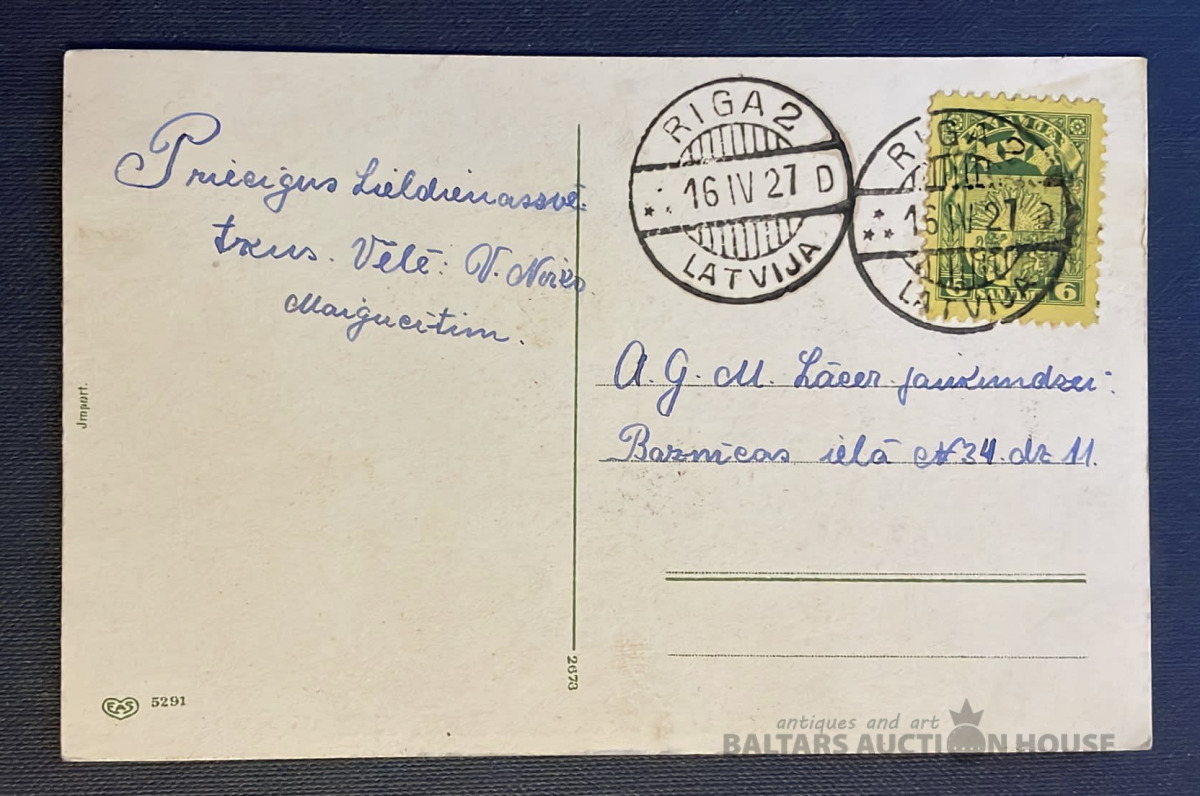 Priecigus Lieldienassvē-
tkus. Vēlē: V. Noriks
Maigucitim.
Import.
EAS 5291
2673
RIGA 2
16 IV 27 D
LATVIJA
RIGA
16 IV 27 D
LATVIJA
LATVIJA
6
A. G. M. Lācer jaukundzei:
Baznīcas ielā № 34. dz 11.
antiques and art
BALTARS AUCTION HOUSE